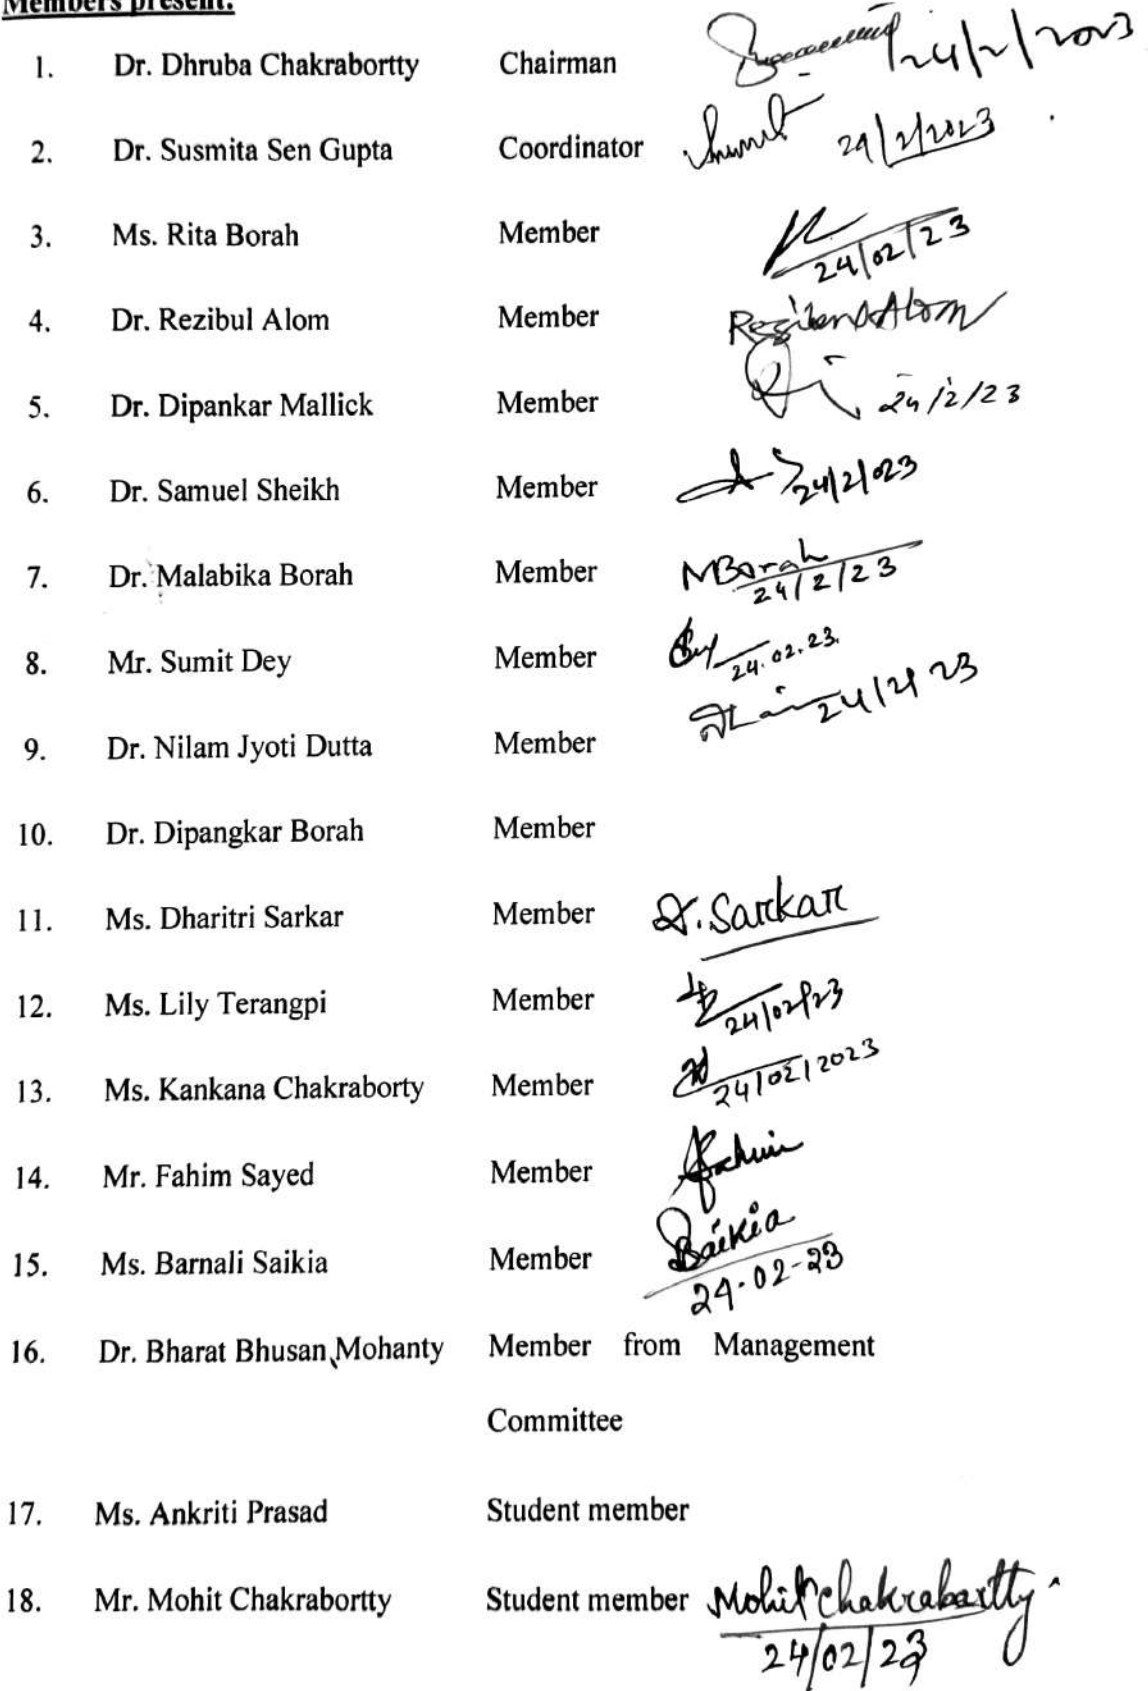 Members present:
1. Dr. Dhruba Chakrabortty Chairman 24/2/2023
2. Dr. Susmita Sen Gupta Coordinator 24/2/2023
3. Ms. Rita Borah Member 24/02/23
4. Dr. Rezibul Alom Member Rezibul Alom
5. Dr. Dipankar Mallick Member 24/2/23
6. Dr. Samuel Sheikh Member 24/2/023
7. Dr. Malabika Borah Member MBorah 24/2/23
8. Mr. Sumit Dey Member 24.02.23.
24/2/23
9. Dr. Nilam Jyoti Dutta Member
10. Dr. Dipangkar Borah Member
11. Ms. Dharitri Sarkar Member D. Sarkar
12. Ms. Lily Terangpi Member 24/02/23
13. Ms. Kankana Chakraborty Member 24/02/2023
14. Mr. Fahim Sayed Member Fahim
15. Ms. Barnali Saikia Member BSaikia
24-02-23
16. Dr. Bharat Bhusan Mohanty Member from Management
Committee
17. Ms. Ankriti Prasad Student member
18. Mr. Mohit Chakrabortty Student member Mohit Chakrabartty
24/02/23